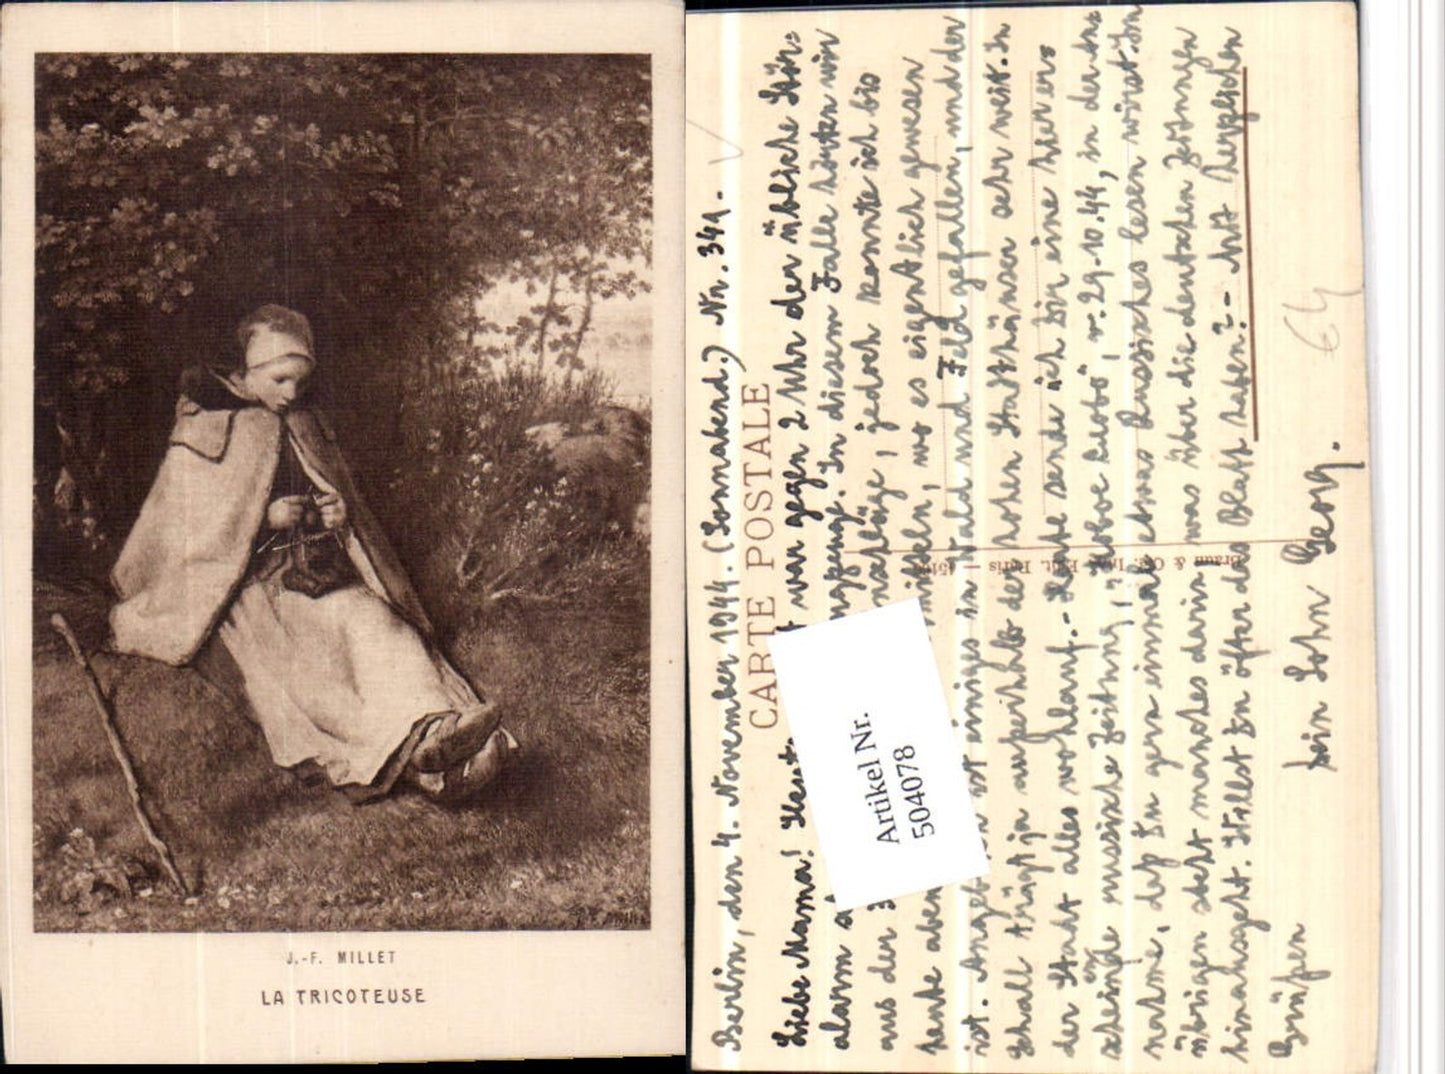 J.-F. MILLET
LA TRICOTEUSE
CARTE POSTALE
Braun & Cie. Imp. Edit. Paris
Berlin, den 4. November 1944. (Sonnabend.) Nr. 341.-
Liebe Mama! war gegen 2 Uhr der übliche Stör=
alarm In diesem Falle hörten wir
aus der jedoch konnte ich bis
heute wo es eigentlich gewesen
ist. ist einiges in Wald und Feld gefallen, und der
Schall trägt ja außerhalb der hohen Stadthäuser sehr weit. In
der Stadt alles wohlauf.- Heute sende ich Dir eine hier er=
scheinde russische Zeitung, v. 29.10.44, in der An=
nahme, daß Du gern einmal etwas Russisches lesen wirst. Im
übrigen steht manches darin was über die deutschen Zeitungen
hinausgeht. Willst Du öfter das Blatt haben?- Mit herzlichen
Grüßen
Dein Sohn Georg.
64
Artikel Nr.
504078